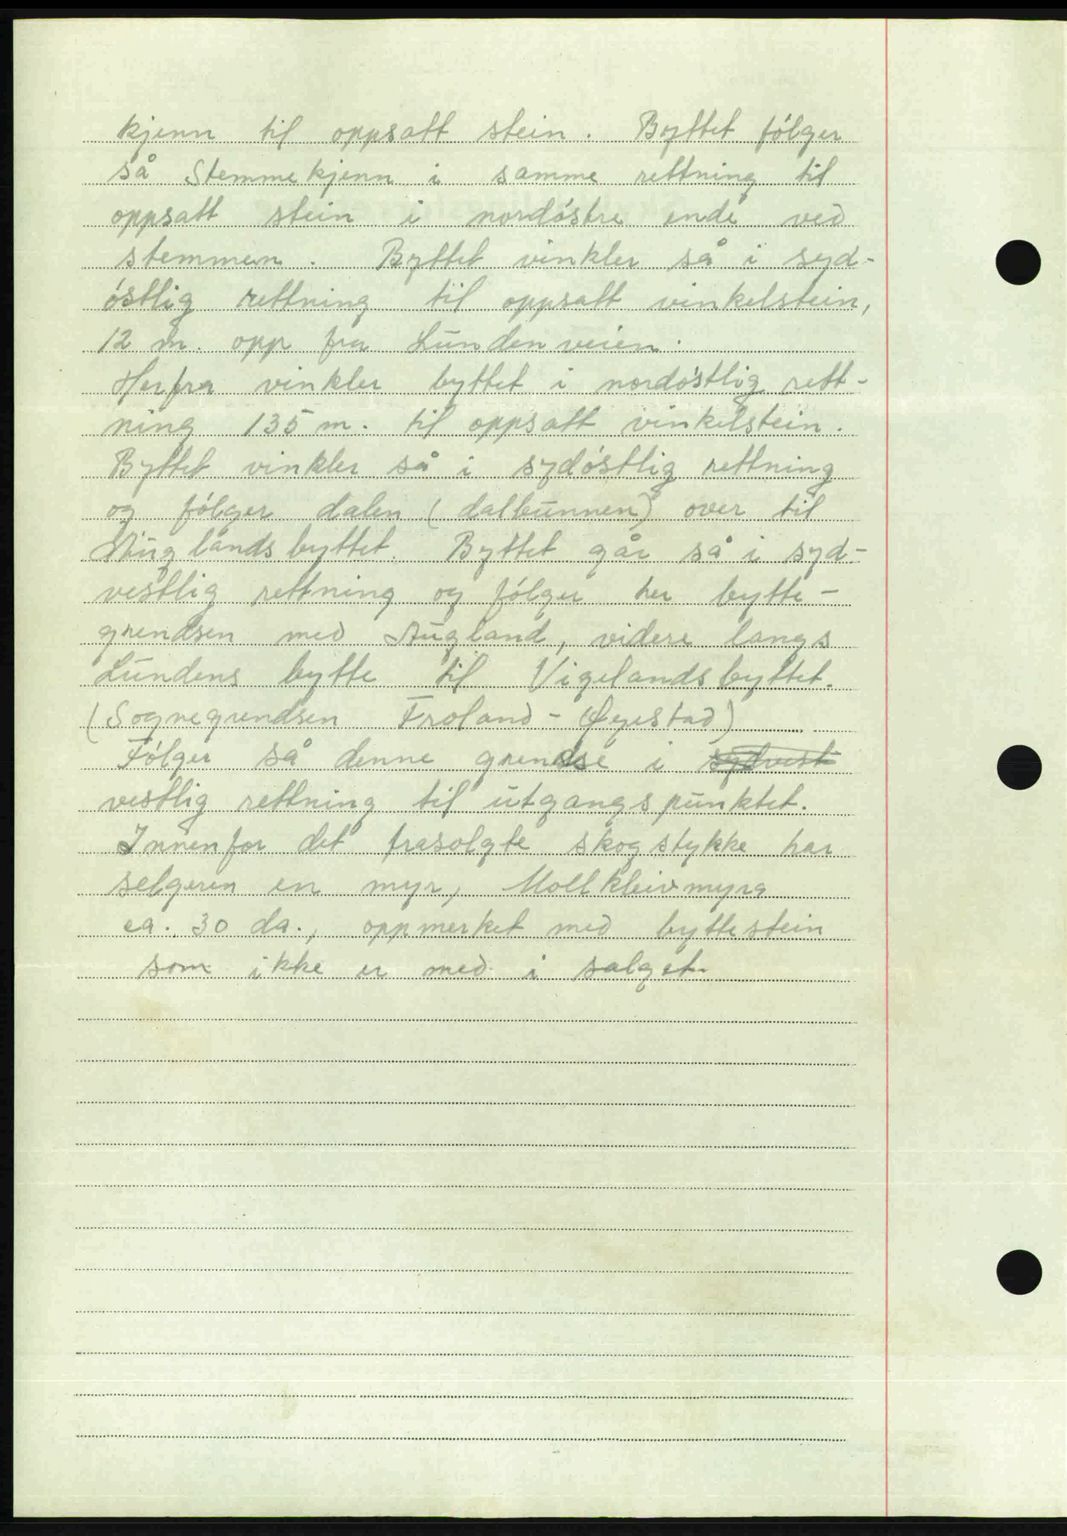 kjenn til oppsatt stein. Byttet følger
så Stemmekjenn i samme rettning til
oppsatt stein i nordøstre ende ved
stemmen. Byttet vinkler så i syd-
østlig rettning til oppsatt vinkelstein,
12 m. opp fra Lundenveien.
Herfra vinkler byttet i nordøstlig rett-
ning 135 m. til oppsatt vinkelstein.
Byttet vinkler så i sydøstlig rettning
og følger dalen (dalbunnen) over til
Auglandsbyttet. Byttet går så i syd-
vestlig rettning og følger her bytte-
grendsen med Augland, videre langs
Lundens bytte til Vigelandsbyttet.
(Sognegrendsen Froland - Øyestad)
Følger så denne grendse i sydvest
vestlig rettning til utgangspunktet.
Innenfor det frasolgte skogstykke har
selgeren en myr, Mollkleivmyra
ca. 30 da., oppmerket med byttestein
som ikke er med i salget.